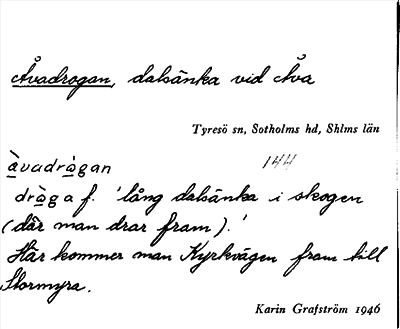 Åvadrogan, dalsänka vid Åva
Tyresö sn, Sotholms hd, Shlms län
àvadràgan 144
dràga f. 'lång dalsänka i skogen
(där man drar fram).'
Här kommer man Kyrkvägen fram till
Stormyra.
Karin Grafström 1946